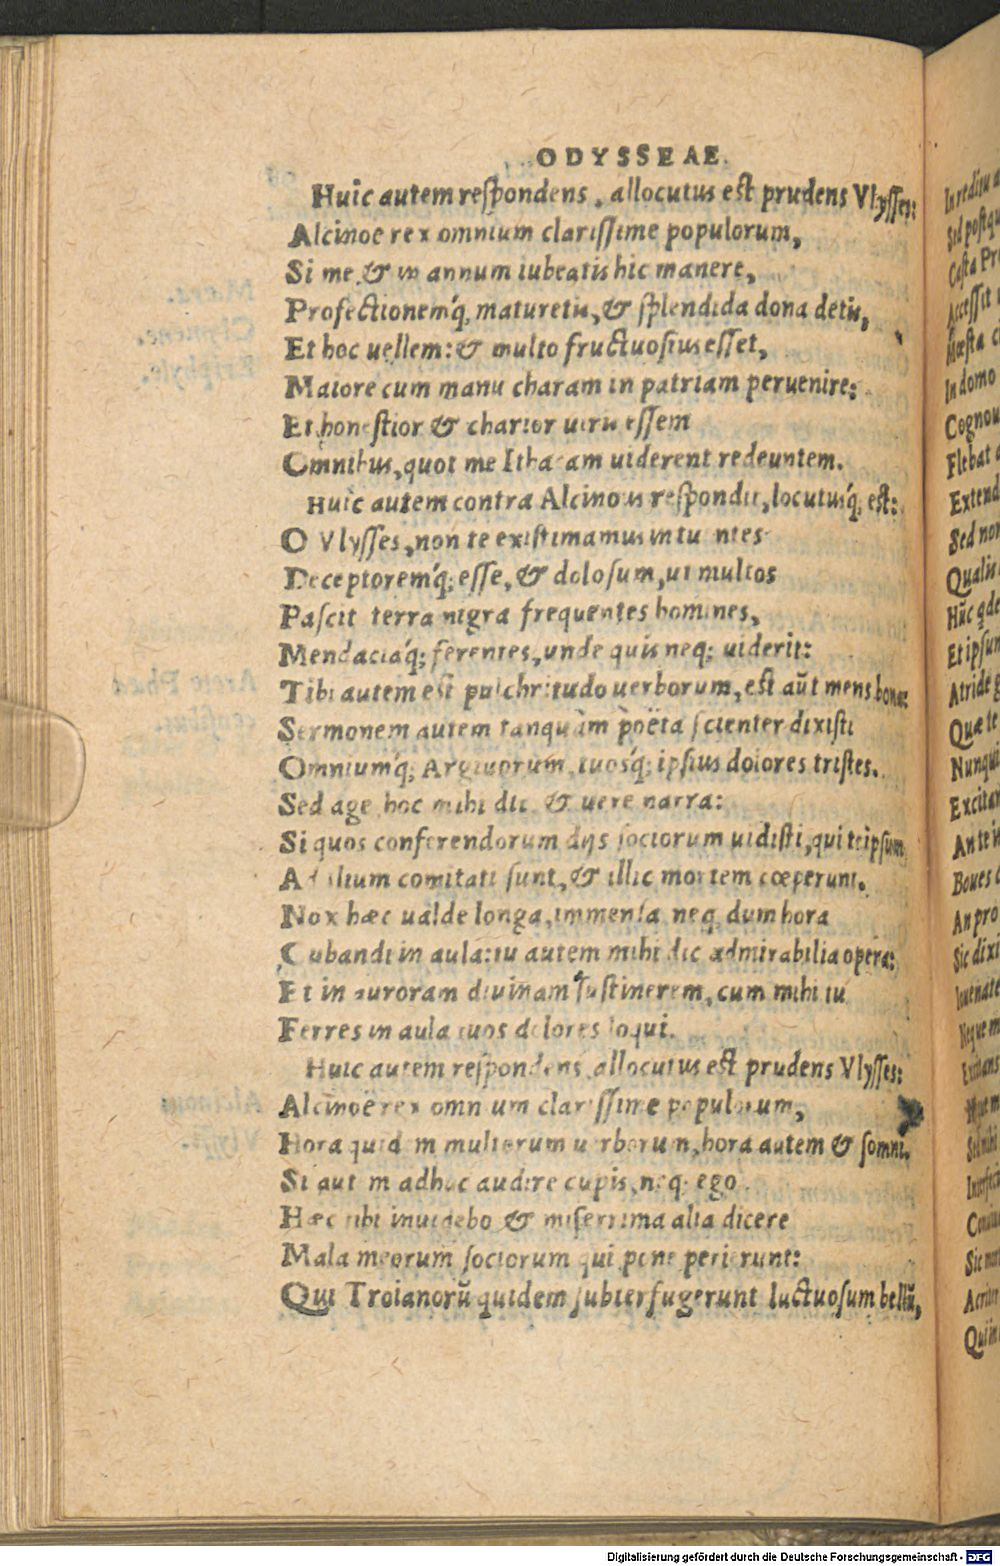 ODYSSEAE.
Huic autem respondens, allocutus est prudens Vlysses:
Alcinoe rex omnium clarissime populorum,
Si me & in annum iubeatis hic manere,
Profectionemq́; maturetis, & splendida dona detis,
Et hoc uellem: & multo fructuosius esset,
Maiore cum manu charam in patriam peruenire:
Et honestior & charior uiris essem
Omnibus, quot me Ithacam uiderent redeuntem.
Huic autem contra Alcinous respondit, locutusq́; est:
O Vlysses, non te existimamus intuentes
Deceptoremq́; esse, & dolosum, ut multos
Pascit terra nigra frequentes homines,
Mendaciaq́; ferentes, unde quis neq; uiderit:
Tibi autem est pulchritudo uerborum, est aūt mens bona:
Sermonem autem tanquàm poëta scienter dixisti
Omniumq́; Argiuorum, tuosq́; ipsius dolores tristes.
Sed age hoc mihi dic, & uere narra:
Si quos conferendorum dijs sociorum uidisti, qui teipsum
Ad Ilium comitati sunt, & illic mortem cœperunt.
Nox hæc ualde longa, immensa, neq; dum hora
Cubandi in aula: tu autem mihi dic admirabilia opera:
Et in auroram diuinam sustinerem, cum mihi tu
Ferres in aula tuos dolores loqui.
Huic autem respondens, allocutus est prudens Vlysses:
Alcinoë rex omnium clarissime populorum,
Hora quidem multorum uerborum, hora autem & somni.
Si autem adhuc audire cupis, neq; ego
Hæc tibi inuidebo & miserrima alia dicere
Mala meorum sociorum qui pone perierunt:
Qui Troianorū quidem subterfugerunt luctuosum bellū,
In reditu
Sed postqu
Casta Pr
Accessit
Mœsta
In domo
Cognou
Flebat
Extend
Sed non
Qualis
Hūc qde
Et ipsum
Atride
Quæ te
Nunqua
Excitan
An te i
Boues
An pro
Sic dixi
Digitalisierung gefördert durch die Deutsche Forschungsgemeinschaft - DFG